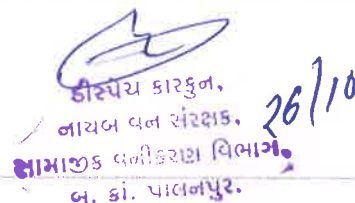 ડીસ્પેચ કારકુન,
નાયબ વન સંરક્ષક,
સામાજીક વનીકરણ વિભાગ,
બ. કાં. પાલનપુર.
26/10